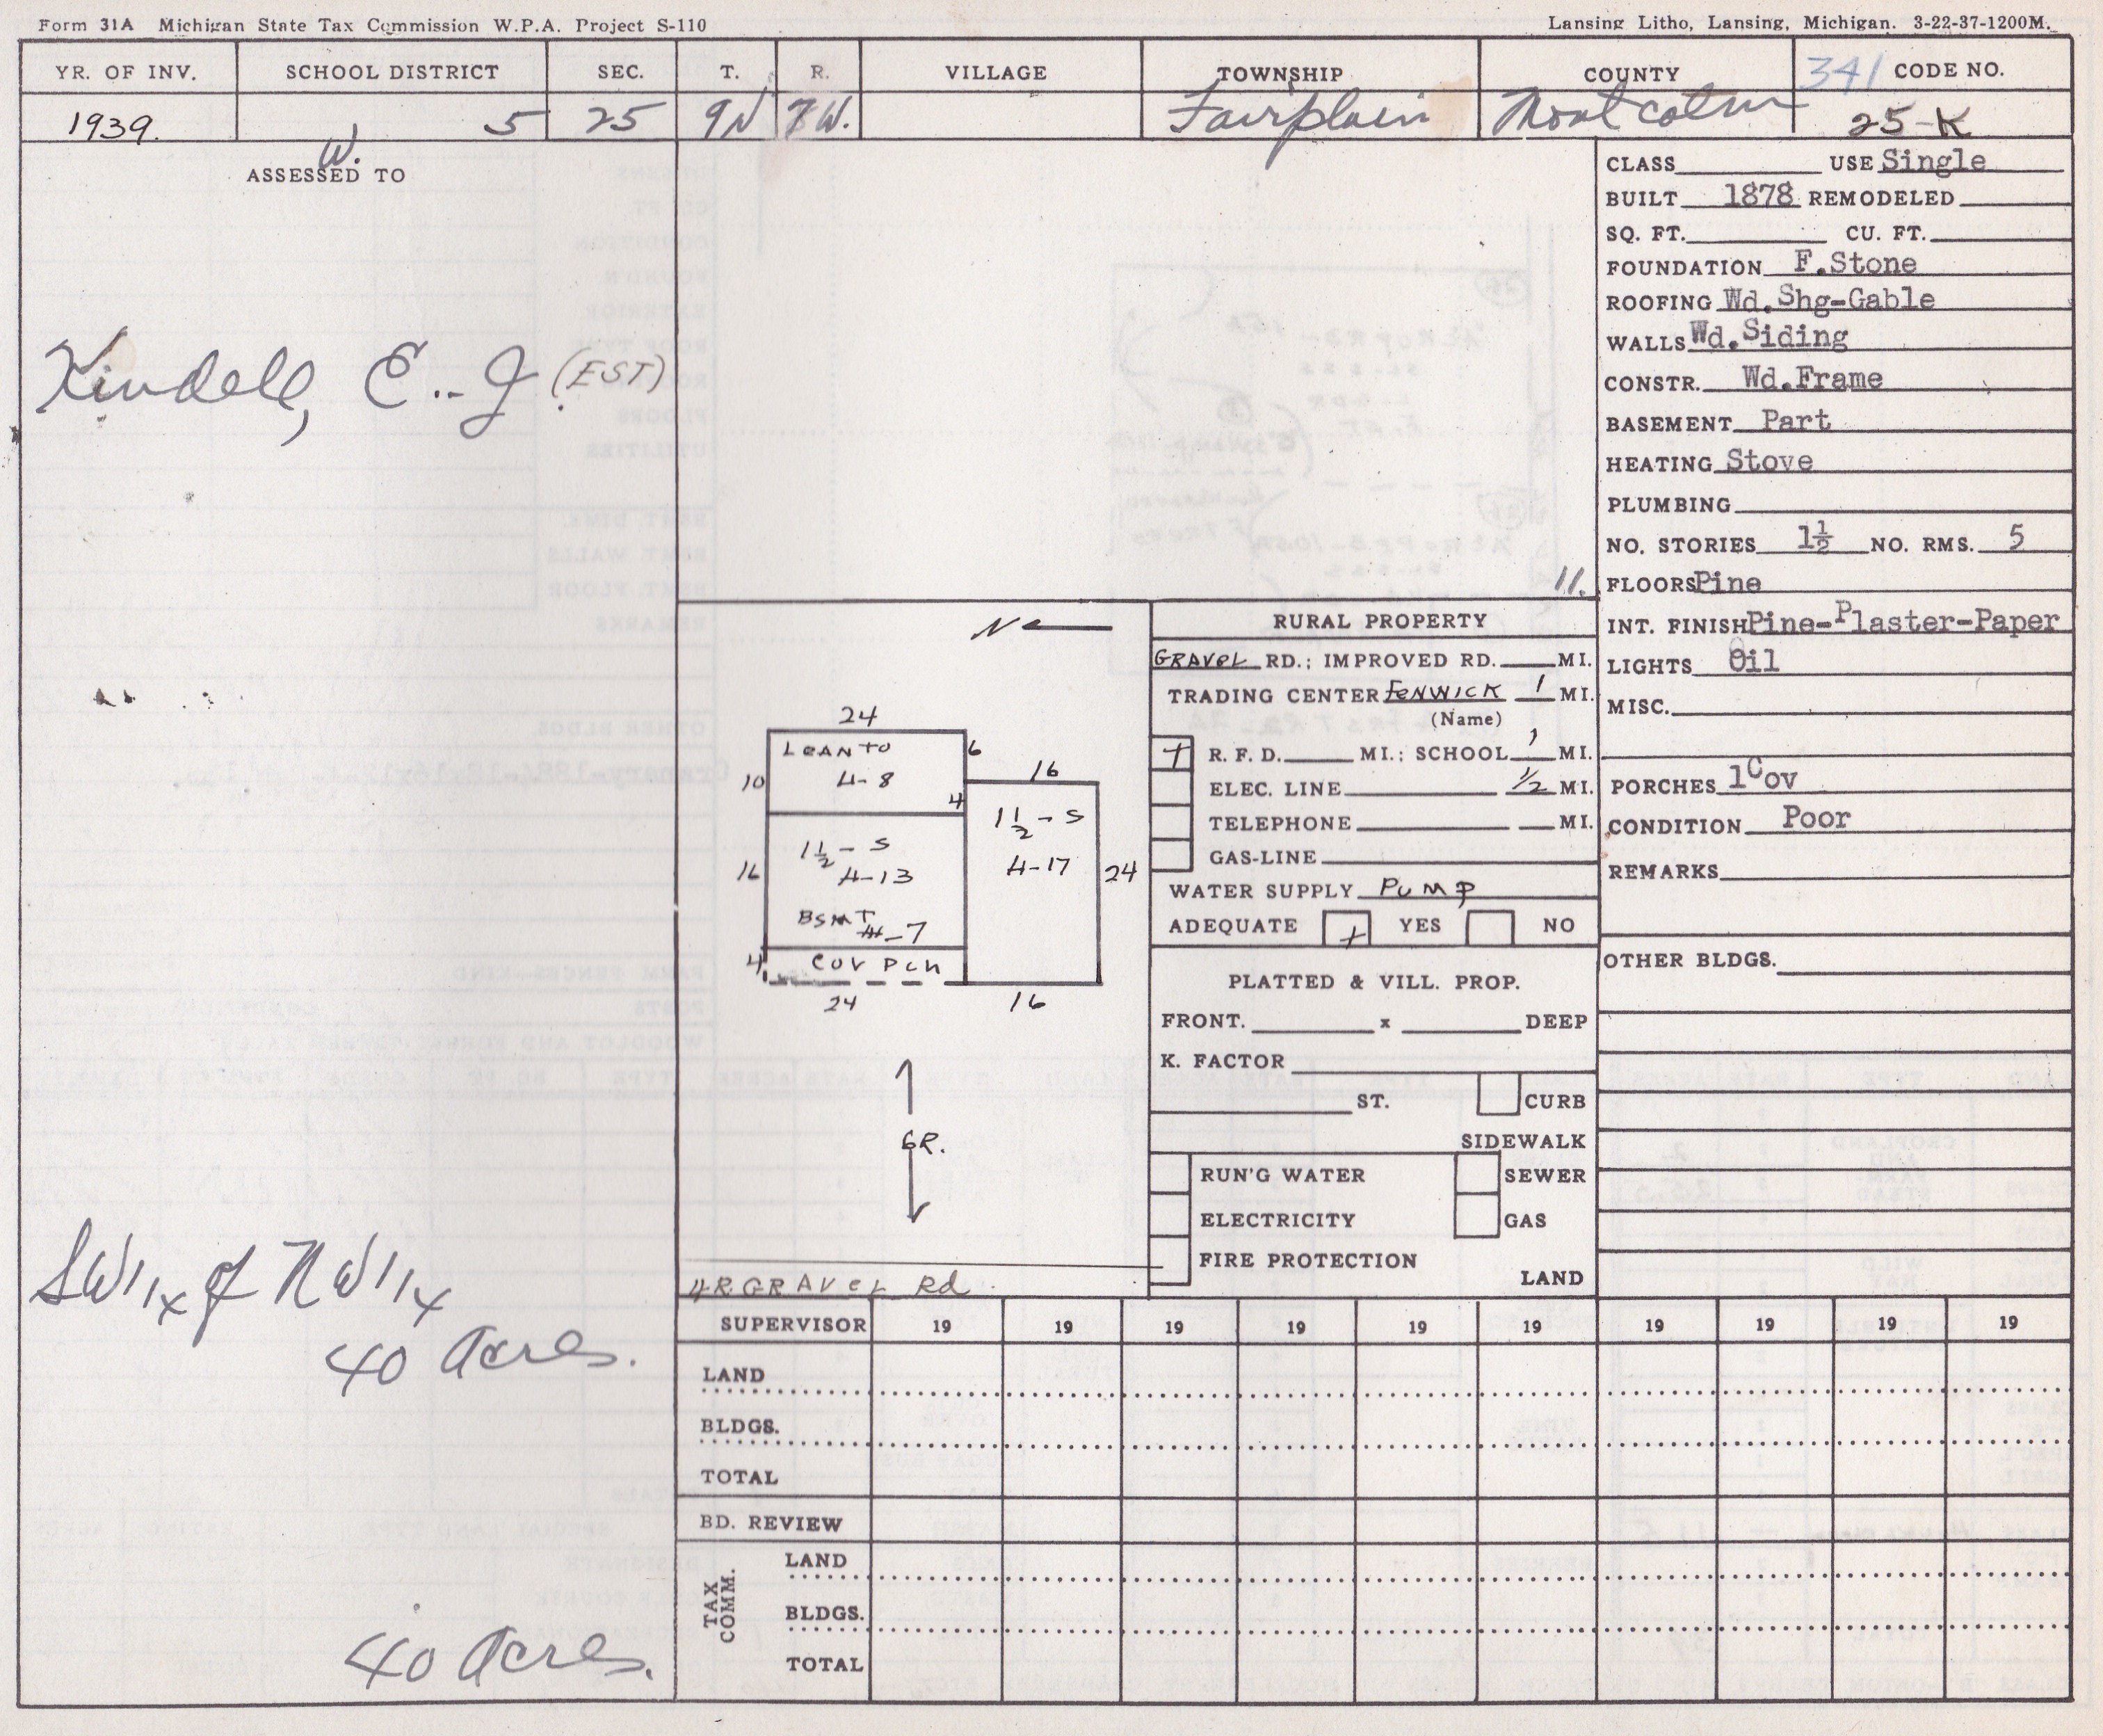 Form 31A Michigan State Tax Commission W.P.A. Project S-110
Lansing Litho, Lansing, Michigan. 3-22-37-1200M.
YR. OF INV. SCHOOL DISTRICT SEC. T. R. VILLAGE TOWNSHIP COUNTY 341 CODE NO.
1939. 5 25 9N 7W. Fairplain Montcalm 25-K
W.
ASSESSED TO
Kindell, E. J (EST)
SW 1/4 of NW 1/4
40 Acres.
40 Acres.
CLASS USE Single
BUILT 1878 REMODELED
SQ. FT. CU. FT.
FOUNDATION F.Stone
ROOFING Wd.Shg-Gable
WALLS Wd.Siding
CONSTR. Wd.Frame
BASEMENT Part
HEATING Stove
PLUMBING
NO. STORIES 1½ NO. RMS. 5
11.
FLOORS Pine
INT. FINISH Pine-Plaster-Paper
LIGHTS Oil
MISC.
PORCHES 1 Cov
CONDITION Poor
REMARKS
OTHER BLDGS.
N
24
LEANTO
6
10
H-8
4
16
1½-S
H-13
16
1½-S
H-17
24
BSMT
H-7
4
COV PCH
24
16
6R.
4R GRAVEL Rd
RURAL PROPERTY
GRAVEL RD.; IMPROVED RD. MI.
TRADING CENTER FENWICK 1 MI.
(Name)
+ R. F. D. MI.; SCHOOL 1 MI.
ELEC. LINE 1/2 MI.
TELEPHONE MI.
GAS-LINE
WATER SUPPLY PUMP
ADEQUATE + YES NO
PLATTED & VILL. PROP.
FRONT. x DEEP
K. FACTOR
ST. CURB
SIDEWALK
RUN'G WATER SEWER
ELECTRICITY GAS
FIRE PROTECTION
LAND
SUPERVISOR 19 19 19 19 19 19 19 19 19 19
LAND
BLDGS.
TOTAL
BD. REVIEW
TAX COMM.
LAND
BLDGS.
TOTAL